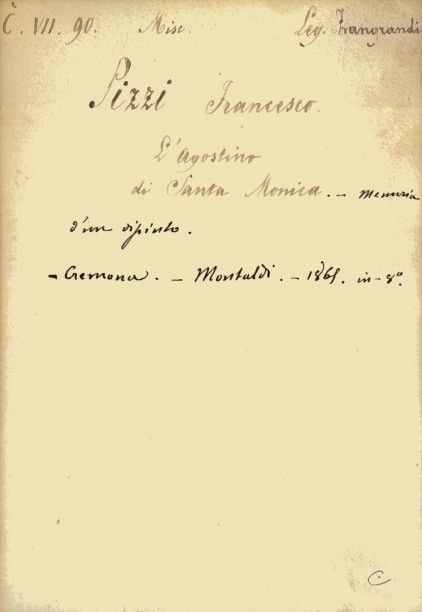 Č. VII. 90. Misc. Leg. Frangrandi
Pizzi Francesco.
L'Agostino
di Santa Monica. – Memoria
d'un dipinto.
– Cremona. – Montaldi. – 1865. in-8º.
C